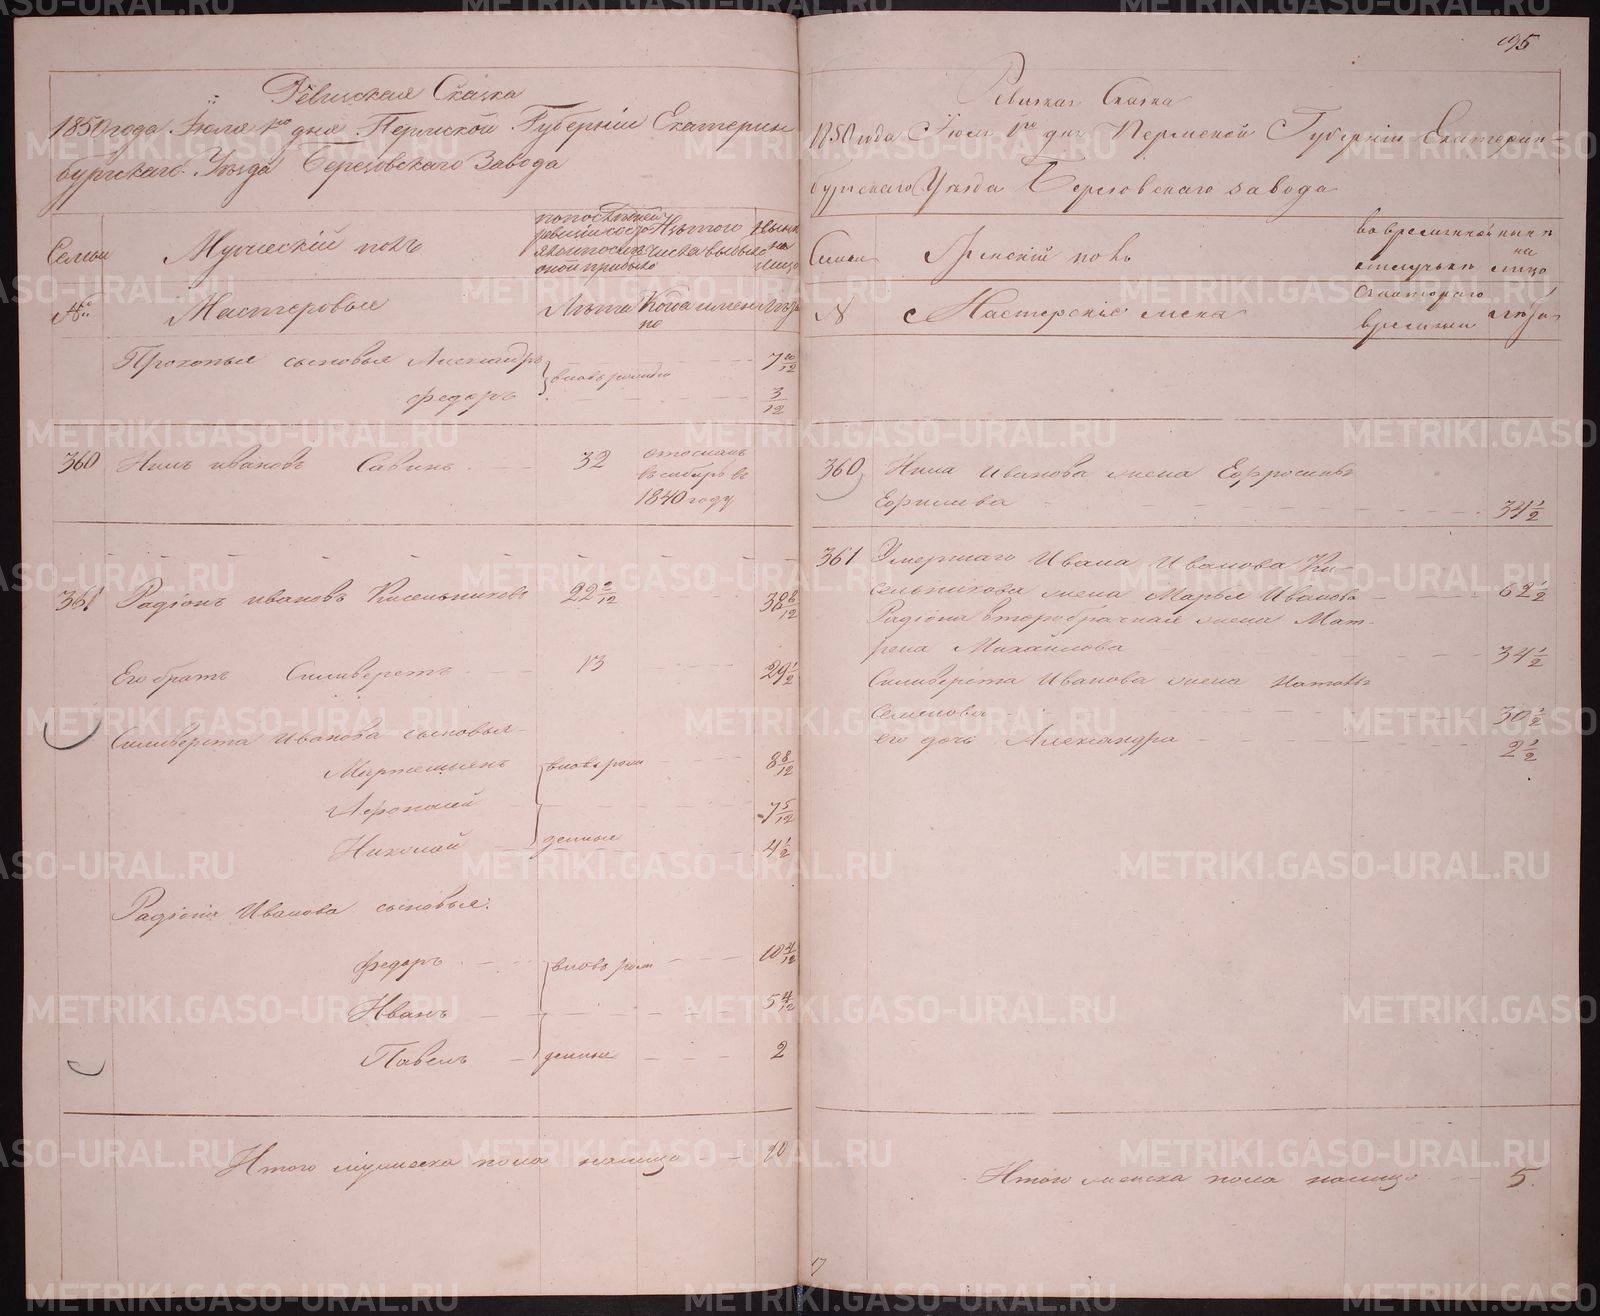 195
Ревизская Сказка
1850 года Іюля 1го дня Пермской Губерніи Екатерин
бургскаго Уѣзда Березовскаго Завода
Семьи
Мужескій полъ
по последней ревизіи состояло и после оной прибыло
Изъ того числа выбыло
Нынѣ на лицо
№
Мастеровые
Лѣта
Когда именно
Лѣта
Прокопья сыновья Александръ вновь рожден 7 10/12
Федоръ 3/12
360 Нилъ Ивановъ Савинъ 32 отосланъ
въ сибирь въ
1840 году
361 Радіонъ Ивановъ Кисельниковъ 22 2/12 38 8/12
Его братъ Силиверстъ 13 29 1/2
Силиверста Иванова сыновья
Мартемьянъ вновь рож 8 8/12
Афонасій 7 5/12
Николай денные 4 1/2
Радіона Иванова сыновья:
Федоръ вновь рож 10 4/12
Иванъ 5 4/12
Павелъ денные 2
Итого мужеска пола налицо 10
Ревизская Сказка
1850 года Іюля 1го дня Пермской Губерніи Екатерин
бургскаго Уѣзда Березовскаго завода
Семьи
Женскій полъ
во временной отлучьки
нынѣ на лицо
№
Мастерскіе жены
Съ котораго времени
лѣта
360 Нила Иванова жена Ефросинья
34 1/2
361 Умершаго Ивана Иванова Ки-
сельникова жена Марья Иванова 62 1/2
Радіона второбрачная жена Мат-
рона Михайлова 34 1/2
Силиверста Иванова жена Наталья
Семенова 30 1/2
его дочь Александра 2 1/2
Итого женска пола налицо 5.
17
METRIKI.GASO-URAL.RU